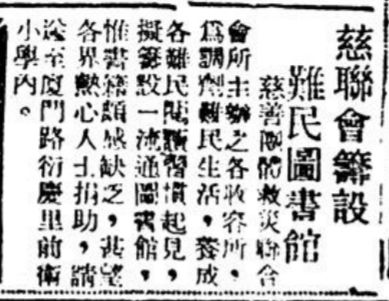 慈聯會籌設
難民圖書館
慈善團體救災聯合
會所主辦之各收容所，
爲調劑難民生活，養成
各難民閱讀習慣起見，
擬籌設一流通圖書館，
惟書籍頗感缺乏，甚望
各界熱心人士捐助，請
送至厦門路衍慶里前衛
小學內。